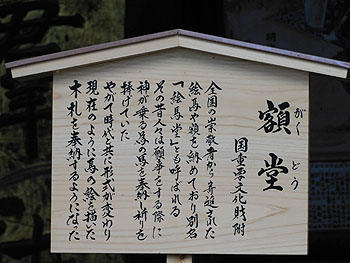 額堂
がくどう
国重要文化財附
全国の崇敬者から寄進された
絵馬や額を納めており別名
「絵馬堂」とも呼ばれる
その昔人々は願事をする際に
神が乗る為の馬を奉納し祈りを
捧げていた
やがて時代と共に形式が変わり
現在のように馬の絵を描いた
木札を奉納するようになった